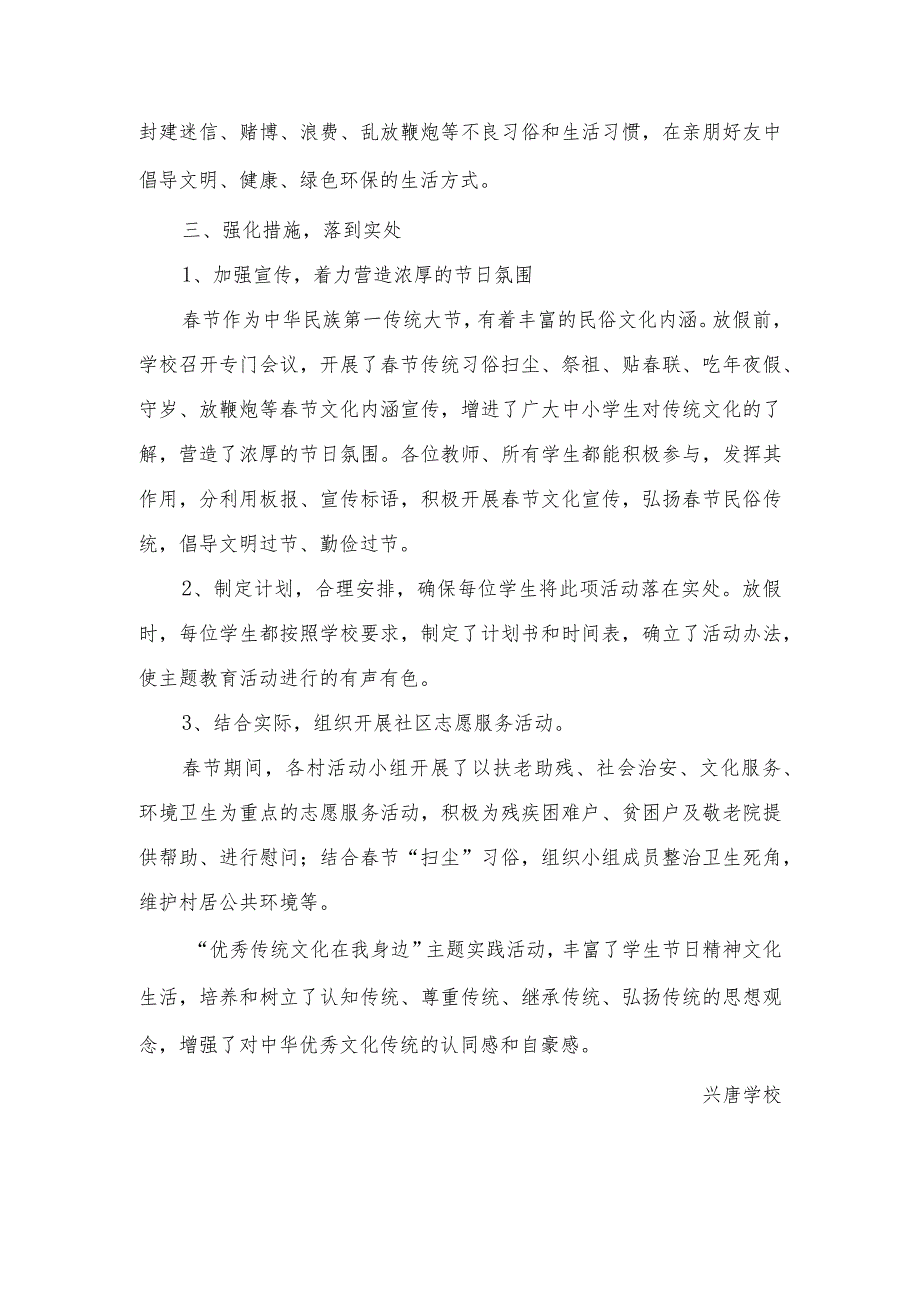 封建迷信、赌博、浪费、乱放鞭炮等不良习俗和生活习惯，在亲朋好友中
倡导文明、健康、绿色环保的生活方式。
三、强化措施，落到实处
1、加强宣传，着力营造浓厚的节日氛围
春节作为中华民族第一传统大节，有着丰富的民俗文化内涵。放假前，
学校召开专门会议，开展了春节传统习俗扫尘、祭祖、贴春联、吃年夜假、
守岁、放鞭炮等春节文化内涵宣传，增进了广大中小学生对传统文化的了
解，营造了浓厚的节日氛围。各位教师、所有学生都能积极参与，发挥其
作用，分利用板报、宣传标语，积极开展春节文化宣传，弘扬春节民俗传
统，倡导文明过节、勤俭过节。
2、制定计划，合理安排，确保每位学生将此项活动落在实处。放假
时，每位学生都按照学校要求，制定了计划书和时间表，确立了活动办法，
使主题教育活动进行的有声有色。
3、结合实际，组织开展社区志愿服务活动。
春节期间，各村活动小组开展了以扶老助残、社会治安、文化服务、
环境卫生为重点的志愿服务活动，积极为残疾困难户、贫困户及敬老院提
供帮助、进行慰问；结合春节“扫尘”习俗，组织小组成员整治卫生死角，
维护村居公共环境等。
“优秀传统文化在我身边”主题实践活动，丰富了学生节日精神文化
生活，培养和树立了认知传统、尊重传统、继承传统、弘扬传统的思想观
念，增强了对中华优秀文化传统的认同感和自豪感。
兴唐学校